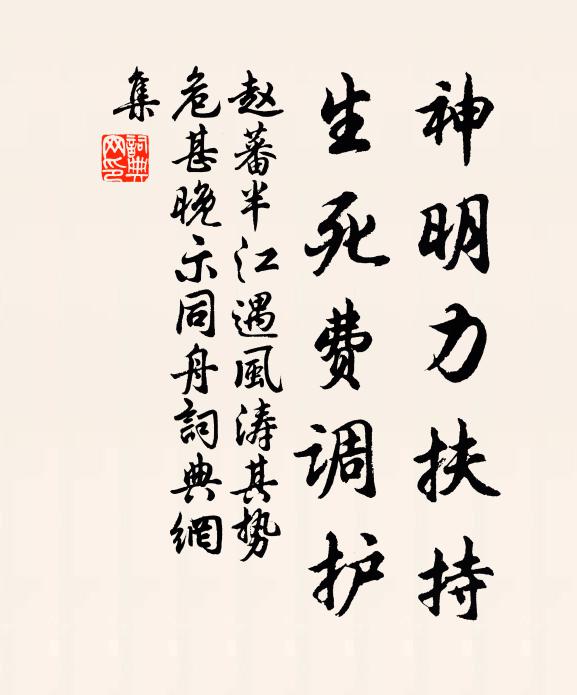 神明力扶持
生死费调护
赵蕃半江遇風涛其势
危甚晚示同舟詞典網
集
詞典網印